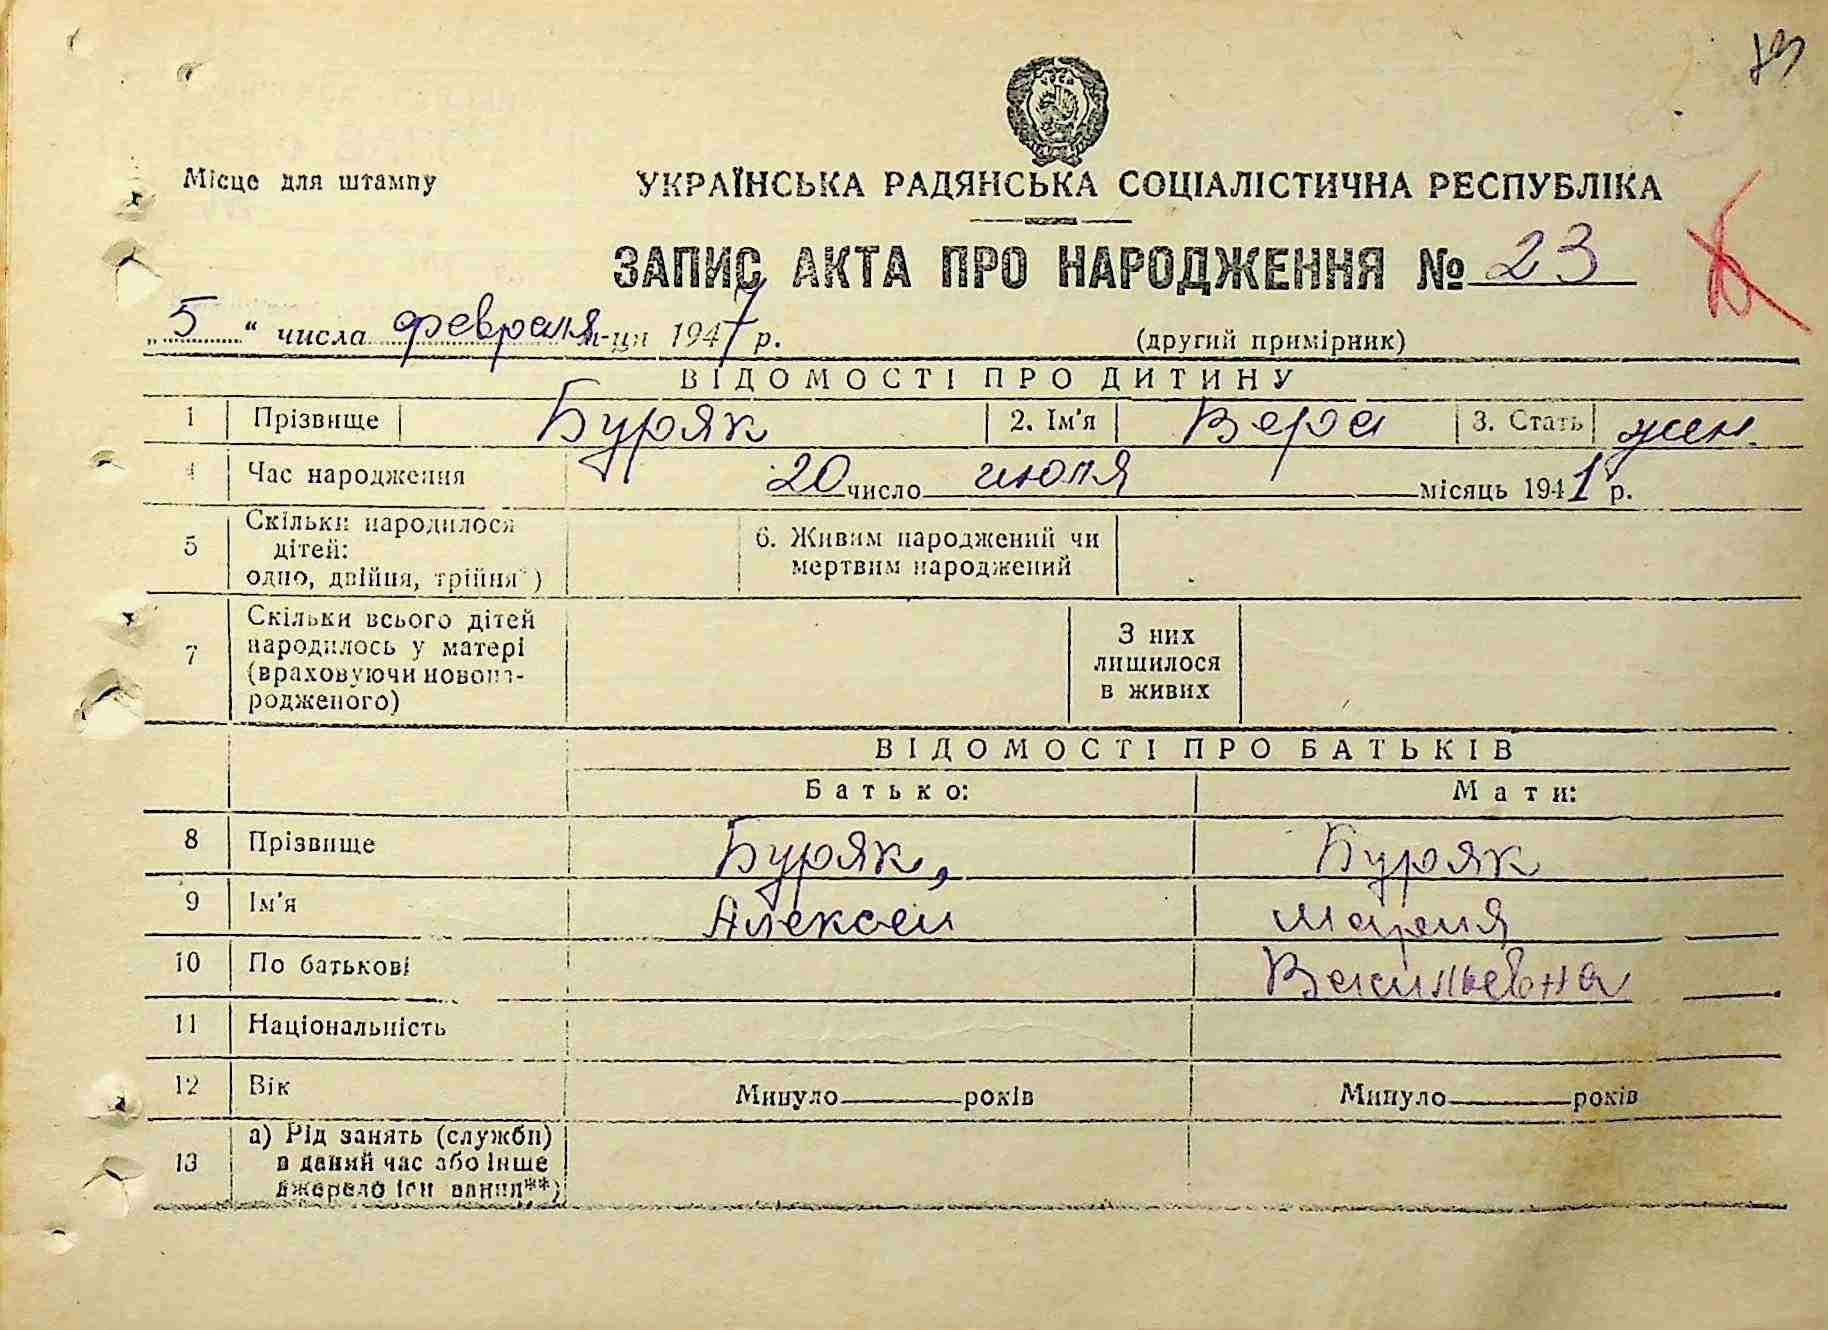 Місце для штампу
УКРАЇНСЬКА РАДЯНСЬКА СОЦІАЛІСТИЧНА РЕСПУБЛІКА
ЗАПИС АКТА ПРО НАРОДЖЕННЯ № 23
„5“ числа февраля м-ця 1947 р.
(другий примірник)
ВІДОМОСТІ ПРО ДИТИНУ
1 Прізвище Буряк 2. Ім'я Вера 3. Стать жен.
4 Час народження 20 число июля місяць 1941 р.
5 Скільки народилося
дітей:
одно, двійня, трійня*)
6. Живим народжений чи
мертвим народжений
7 Скільки всього дітей
народилось у матері
(враховуючи новона-
родженого)
З них
лишилося
в живих
ВІДОМОСТІ ПРО БАТЬКІВ
Батько: Мати:
8 Прізвище Буряк, Буряк
9 Ім'я Алексей Мария
10 По батькові Васильевна
11 Національність
12 Вік Минуло років Минуло років
13 а) Рід занять (служби)
в даний час або інше
джерело існування**)